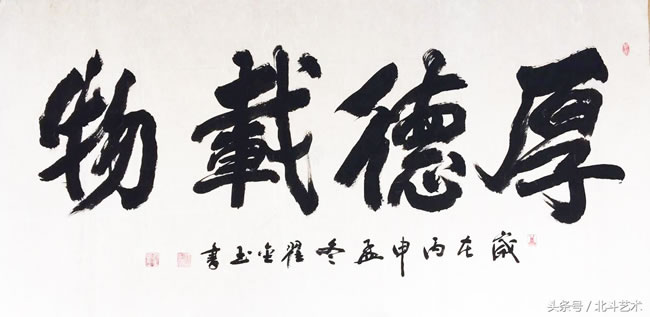 厚德載物
歲在丙申孟冬翟金玉書
头条号／北斗艺术